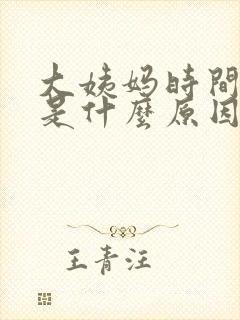 大姨妈時間
是什麼原因
王青汪